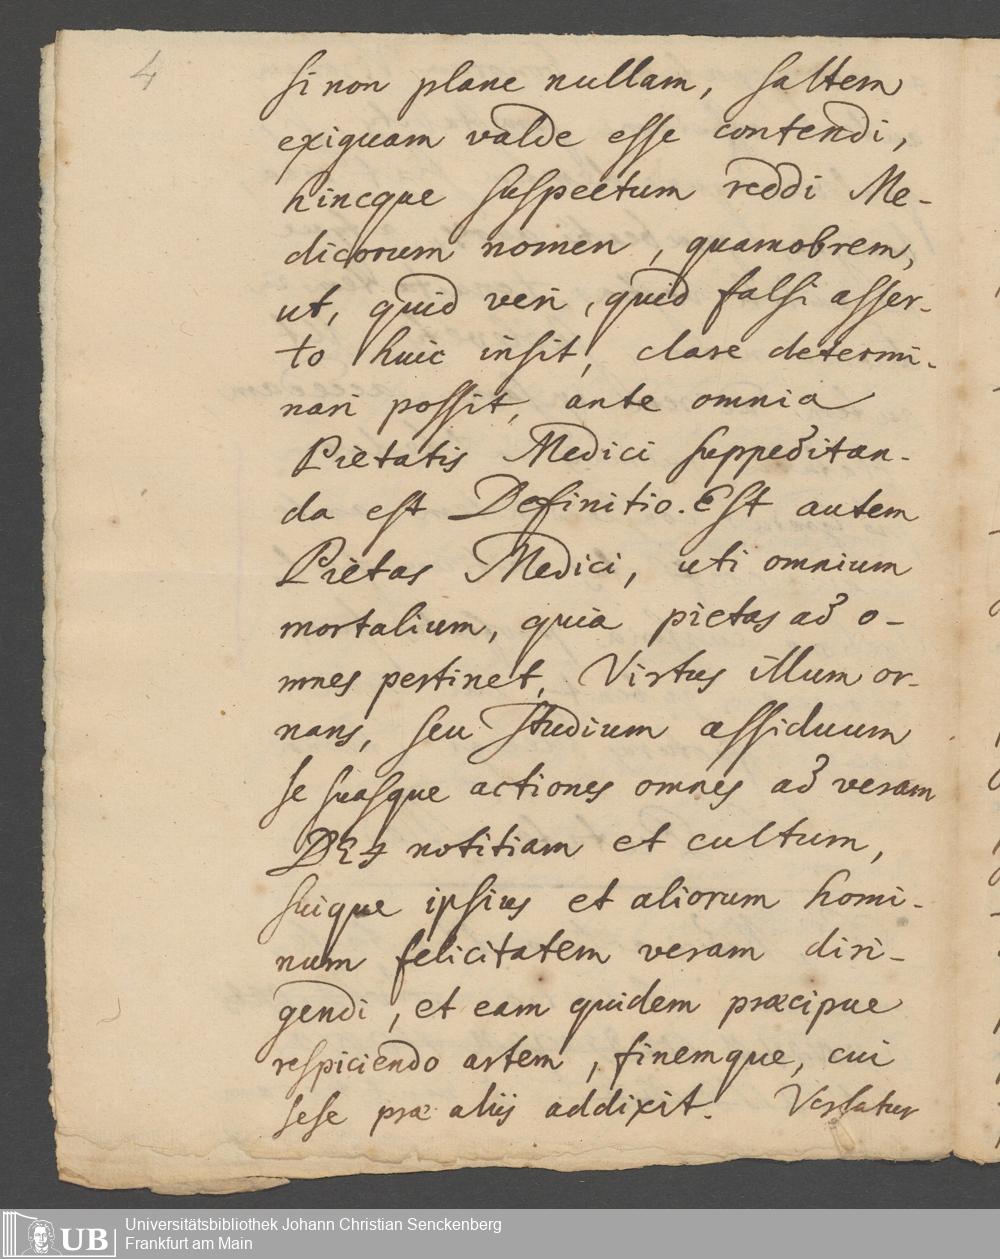 4
si non plane nullam, saltem
exiguam valde esse contendi,
hincque suspectum reddi Me-
dicorum nomen, quamobrem,
ut, quid veri, quid falsi asser-
to huic insit, clare determi-
nari possit, ante omnia
Pietatis Medici suppeditan-
da est Definitio. Est autem
Pietas Medici, uti omnium
mortalium, quia pietas ad o-
mnes pertinet, Virtus illum or-
nans, seu studium assiduum
se suasque actiones omnes ad veram
DEI notitiam et cultum,
suique ipsius et aliorum homi-
num felicitatem veram diri-
gendi, et eam quidem præcipue
respiciendo artem, finemque, cui
sese præ aliis addixit. Versatur
UB Universitätsbibliothek Johann Christian Senckenberg
Frankfurt am Main